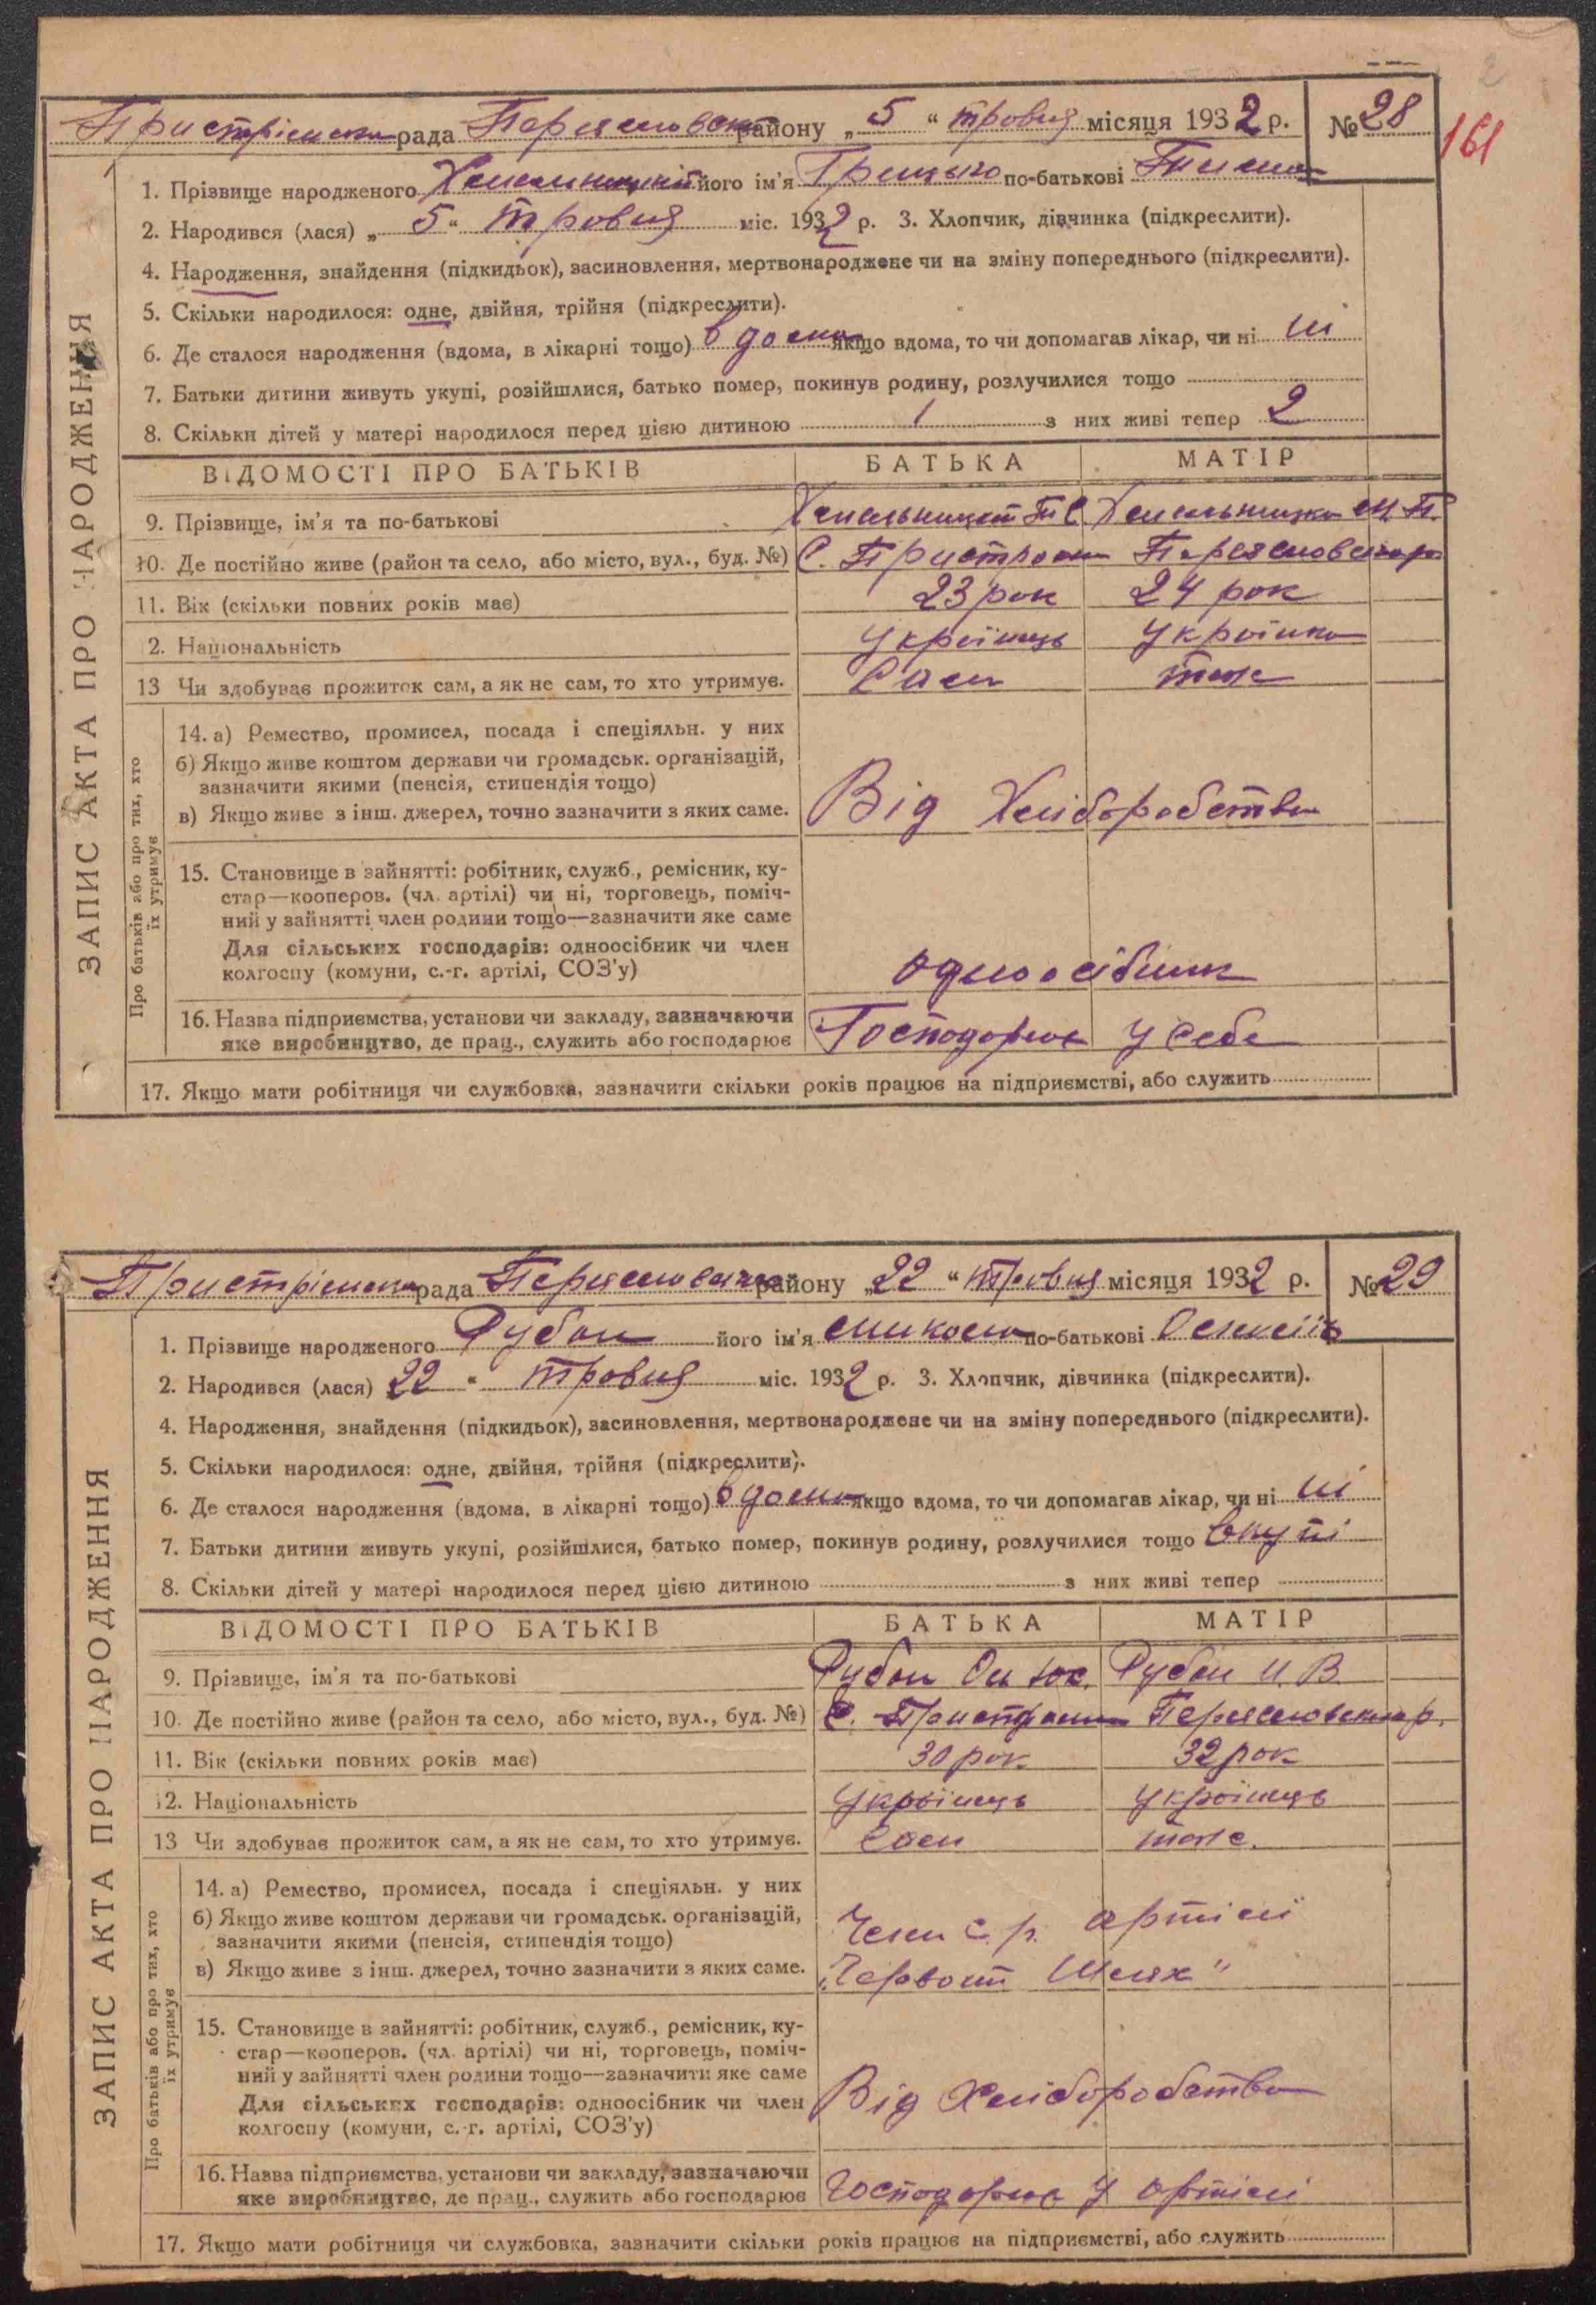 2
161
Пристрімська рада Переяславськ району „ 5 “ травня місяця 1932 р. № 28
ЗАПИС АКТА ПРО НАРОДЖЕННЯ
1. Прізвище народженого Хмельницький його ім'я Грицько по-батькові
2. Народився (лася) „ 5 “ травня міс. 1932 р. 3. Хлопчик, дівчинка (підкреслити).
4. Народження, знайдення (підкидьок), засиновлення, мертвонароджене чи на зміну попереднього (підкреслити).
5. Скільки народилося: одне, двійня, трійня (підкреслити).
6. Де сталося народження (вдома, в лікарні тощо) вдома якщо вдома, то чи допомагав лікар, чи ні ні
7. Батьки дитини живуть укупі, розійшлися, батько помер, покинув родину, розлучилися тощо
8. Скільки дітей у матері народилося перед цією дитиною 1 з них живі тепер 2
ВІДОМОСТІ ПРО БАТЬКІВ БАТЬКА МАТІР
9. Прізвище, ім'я та по-батькові Хмельницкий Т С. Хмельницка М. П.
10. Де постійно живе (район та село, або місто, вул., буд. №) С. Пристроми Переяславськ р
11. Вік (скільки повних років має) 23 рок 24 рок
12. Національність Українець Українка
13 Чи здобуває прожиток сам, а як не сам, то хто утримує. Сам тоже
Про батьків або про тих, хто їх утримує
14. а) Ремество, промисел, посада і спеціяльн. у них
б) Якщо живе коштом держави чи громадськ. організацій,
зазначити якими (пенсія, стипендія тощо)
в) Якщо живе з інш. джерел, точно зазначити з яких саме. Від Хліборобства
15. Становище в зайнятті: робітник, служб., ремісник, ку-
стар—кооперов. (чл. артілі) чи ні, торговець, поміч-
ний у зайнятті член родини тощо—зазначити яке саме
Для сільських господарів: одноосібник чи член
колгоспу (комуни, с.-г. артілі, СОЗ'у) одноосібник
16. Назва підприємства, установи чи закладу, зазначаючи
яке виробництво, де прац., служить або господарює Господарює у себе
17. Якщо мати робітниця чи службовка, зазначити скільки років працює на підприємстві, або служить
Пристрімська рада Переяславська району „ 22 “ травня місяця 1932 р. № 29
ЗАПИС АКТА ПРО НАРОДЖЕННЯ
1. Прізвище народженого Рубан його ім'я Микола по-батькові
2. Народився (лася) 22 “ травня міс. 1932 р. 3. Хлопчик, дівчинка (підкреслити).
4. Народження, знайдення (підкидьок), засиновлення, мертвонароджене чи на зміну попереднього (підкреслити).
5. Скільки народилося: одне, двійня, трійня (підкреслити).
6. Де сталося народження (вдома, в лікарні тощо) вдома якщо вдома, то чи допомагав лікар, чи ні ні
7. Батьки дитини живуть укупі, розійшлися, батько помер, покинув родину, розлучилися тощо вкупі
8. Скільки дітей у матері народилося перед цією дитиною з них живі тепер
ВІДОМОСТІ ПРО БАТЬКІВ БАТЬКА МАТІР
9. Прізвище, ім'я та по-батькові Рубан Ом Рубан И. В.
10. Де постійно живе (район та село, або місто, вул., буд. №) С. Пристроми Переяславськ р.
11. Вік (скільки повних років має) 30 рок 32 рок
12. Національність Українець Українець
13 Чи здобуває прожиток сам, а як не сам, то хто утримує. Сам тоже.
Про батьків або про тих, хто їх утримує
14. а) Ремество, промисел, посада і спеціяльн. у них
б) Якщо живе коштом держави чи громадськ. організацій, Член с. г. артілі
зазначити якими (пенсія, стипендія тощо)
в) Якщо живе з інш. джерел, точно зазначити з яких саме. „Червоний Шлях“
15. Становище в зайнятті: робітник, служб., ремісник, ку-
стар—кооперов. (чл. артілі) чи ні, торговець, поміч-
ний у зайнятті член родини тощо—зазначити яке саме
Для сільських господарів: одноосібник чи член Від Хліборобства
колгоспу (комуни, с.-г. артілі, СОЗ'у)
16. Назва підприємства, установи чи закладу, зазначаючи
яке виробництво, де прац., служить або господарює Господарює у артілі
17. Якщо мати робітниця чи службовка, зазначити скільки років працює на підприємстві, або служить